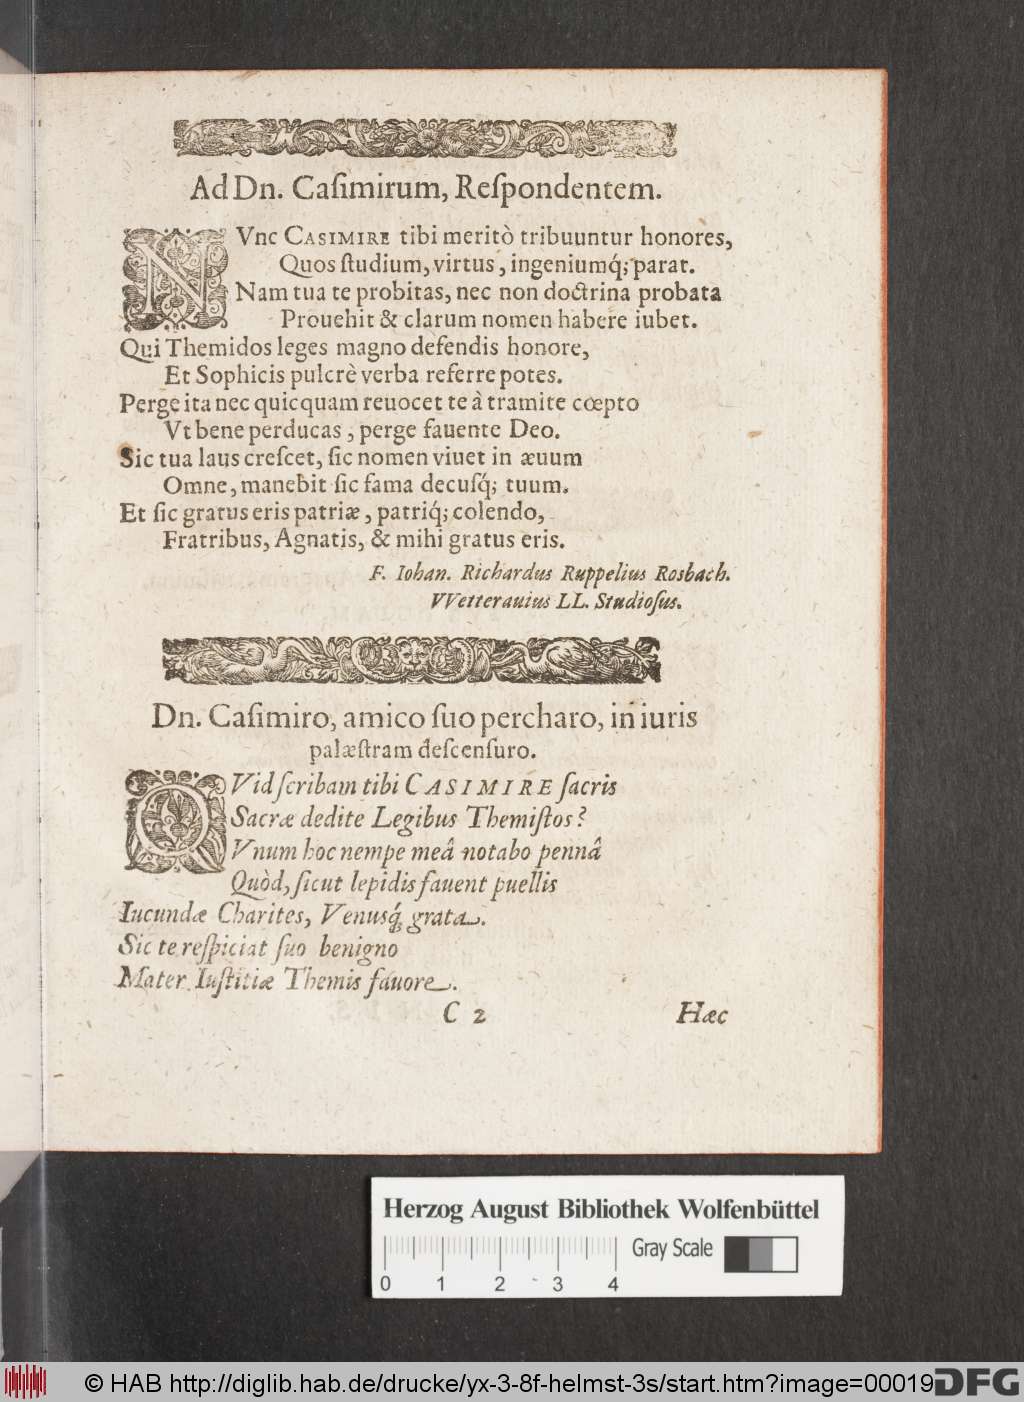 Ad Dn. Caſimirum, Reſpondentem.
NVnc CASIMIRE tibi meritò tribuuntur honores,
Quos ſtudium, virtus, ingeniumq́; parat.
Nam tua te probitas, nec non doctrina probata
Prouehit & clarum nomen habere iubet.
Qui Themidos leges magno defendis honore,
Et Sophicis pulcrè verba referre potes.
Perge ita nec quicquam reuocet te à tramite cœpto
Vt bene perducas, perge fauente Deo.
Sic tua laus creſcet, ſic nomen viuet in æuum
Omne, manebit ſic fama decuſq́; tuum.
Et ſic gratus eris patriæ, patriq́; colendo,
Fratribus, Agnatis, & mihi gratus eris.
F. Iohan. Richardus Ruppelius Rosbach.
VVetterauius LL. Studioſus.
Dn. Caſimiro, amico ſuo percharo, in iuris
palæſtram deſcenſuro.
QVid ſcribam tibi CASIMIRE ſacris
Sacræ dedite Legibus Themiſtos?
Vnum hoc nempe meâ notabo pennâ
Quòd, ſicut lepidis fauent puellis
Iucundæ Charites, Venusq́; grata.
Sic te reſpiciat ſuo benigno
Mater Iuſtitiæ Themis fauore.
C 2 Hæc
Herzog August Bibliothek Wolfenbüttel
Gray Scale
0 1 2 3 4
© HAB http://diglib.hab.de/drucke/yx-3-8f-helmst-3s/start.htm?image=00019
DFG